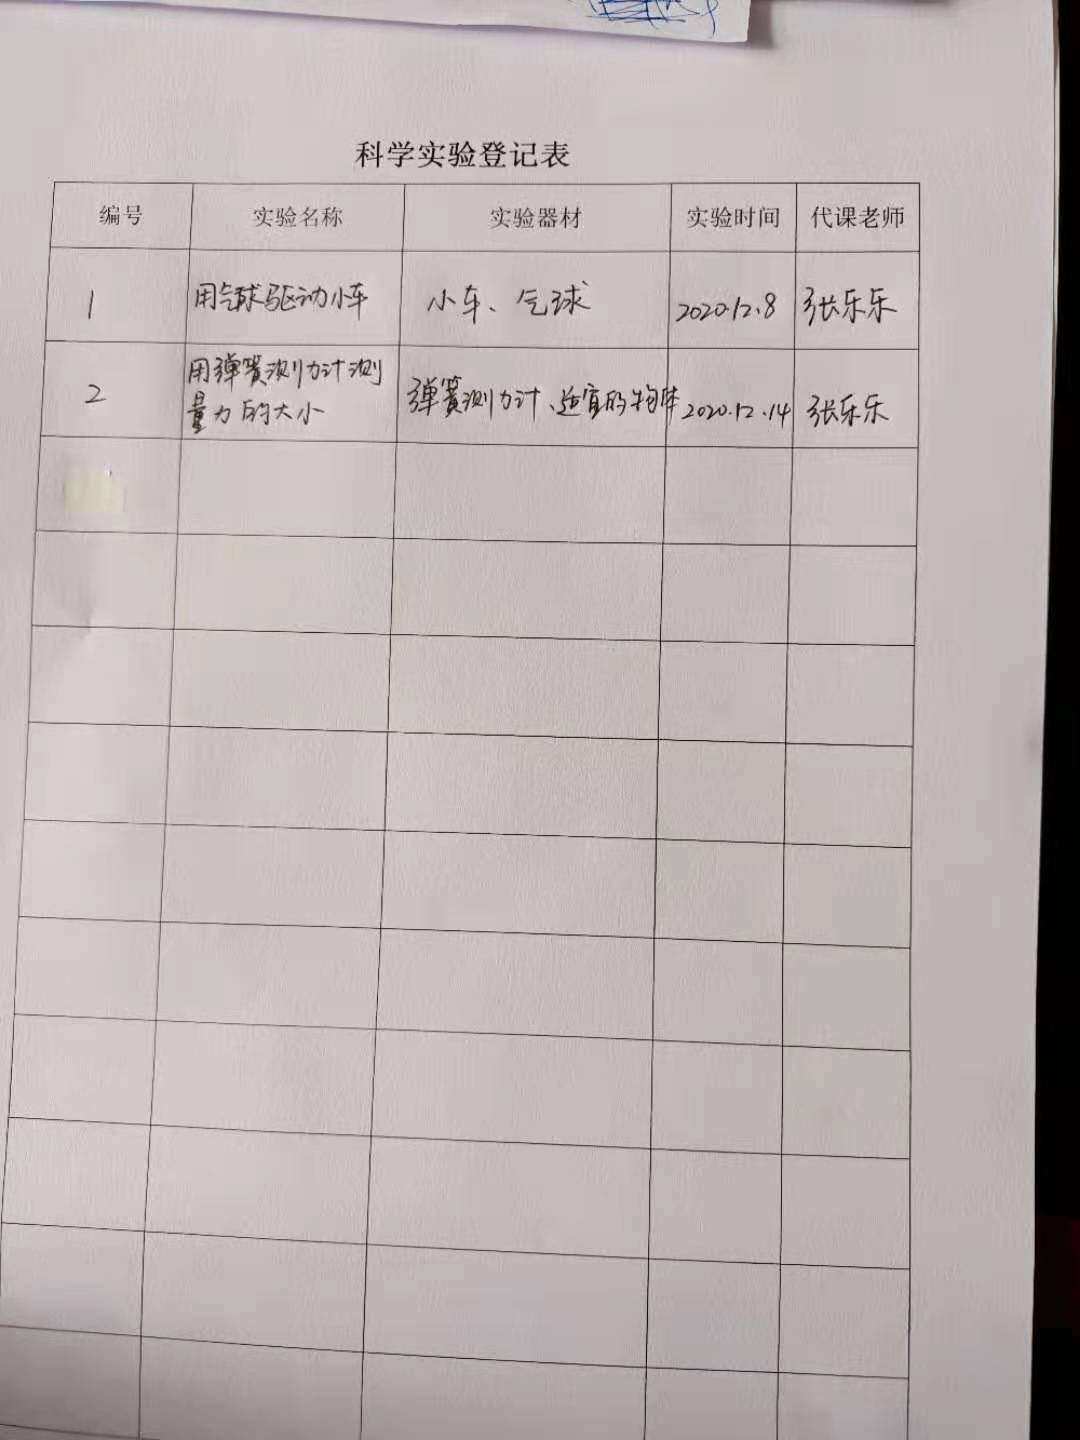 科学实验登记表
编号 实验名称 实验器材 实验时间 代课老师
1 用气球驱动小车 小车、气球 2020.12.8 张乐乐
2 用弹簧测力计测 弹簧测力计、适宜的物体 2020.12.14 张乐乐
量力的大小